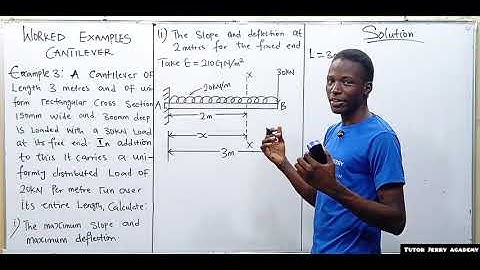 WORKED EXAMPLES
CANTILEVER
Example 3: A Cantilever of
Length 3 metres and of uni-
form rectangular Cross Section
150mm wide and 300mm deep
is Loaded with a 30KN Load
at its free end. In addition
to this it carries a uni-
formly distributed Load of
20KN Per metre run over
Its entire Length, Calculate:
i) The maximum slope and
maximum deflection
ii) The Slope and deflection at
2 metres for the fixed end
Take E = 210GN/m²
X
30KN
20KN/m
A
B
2m
x
X
3m
Solution
L = 3
TUTOR JERRY ACADEMY